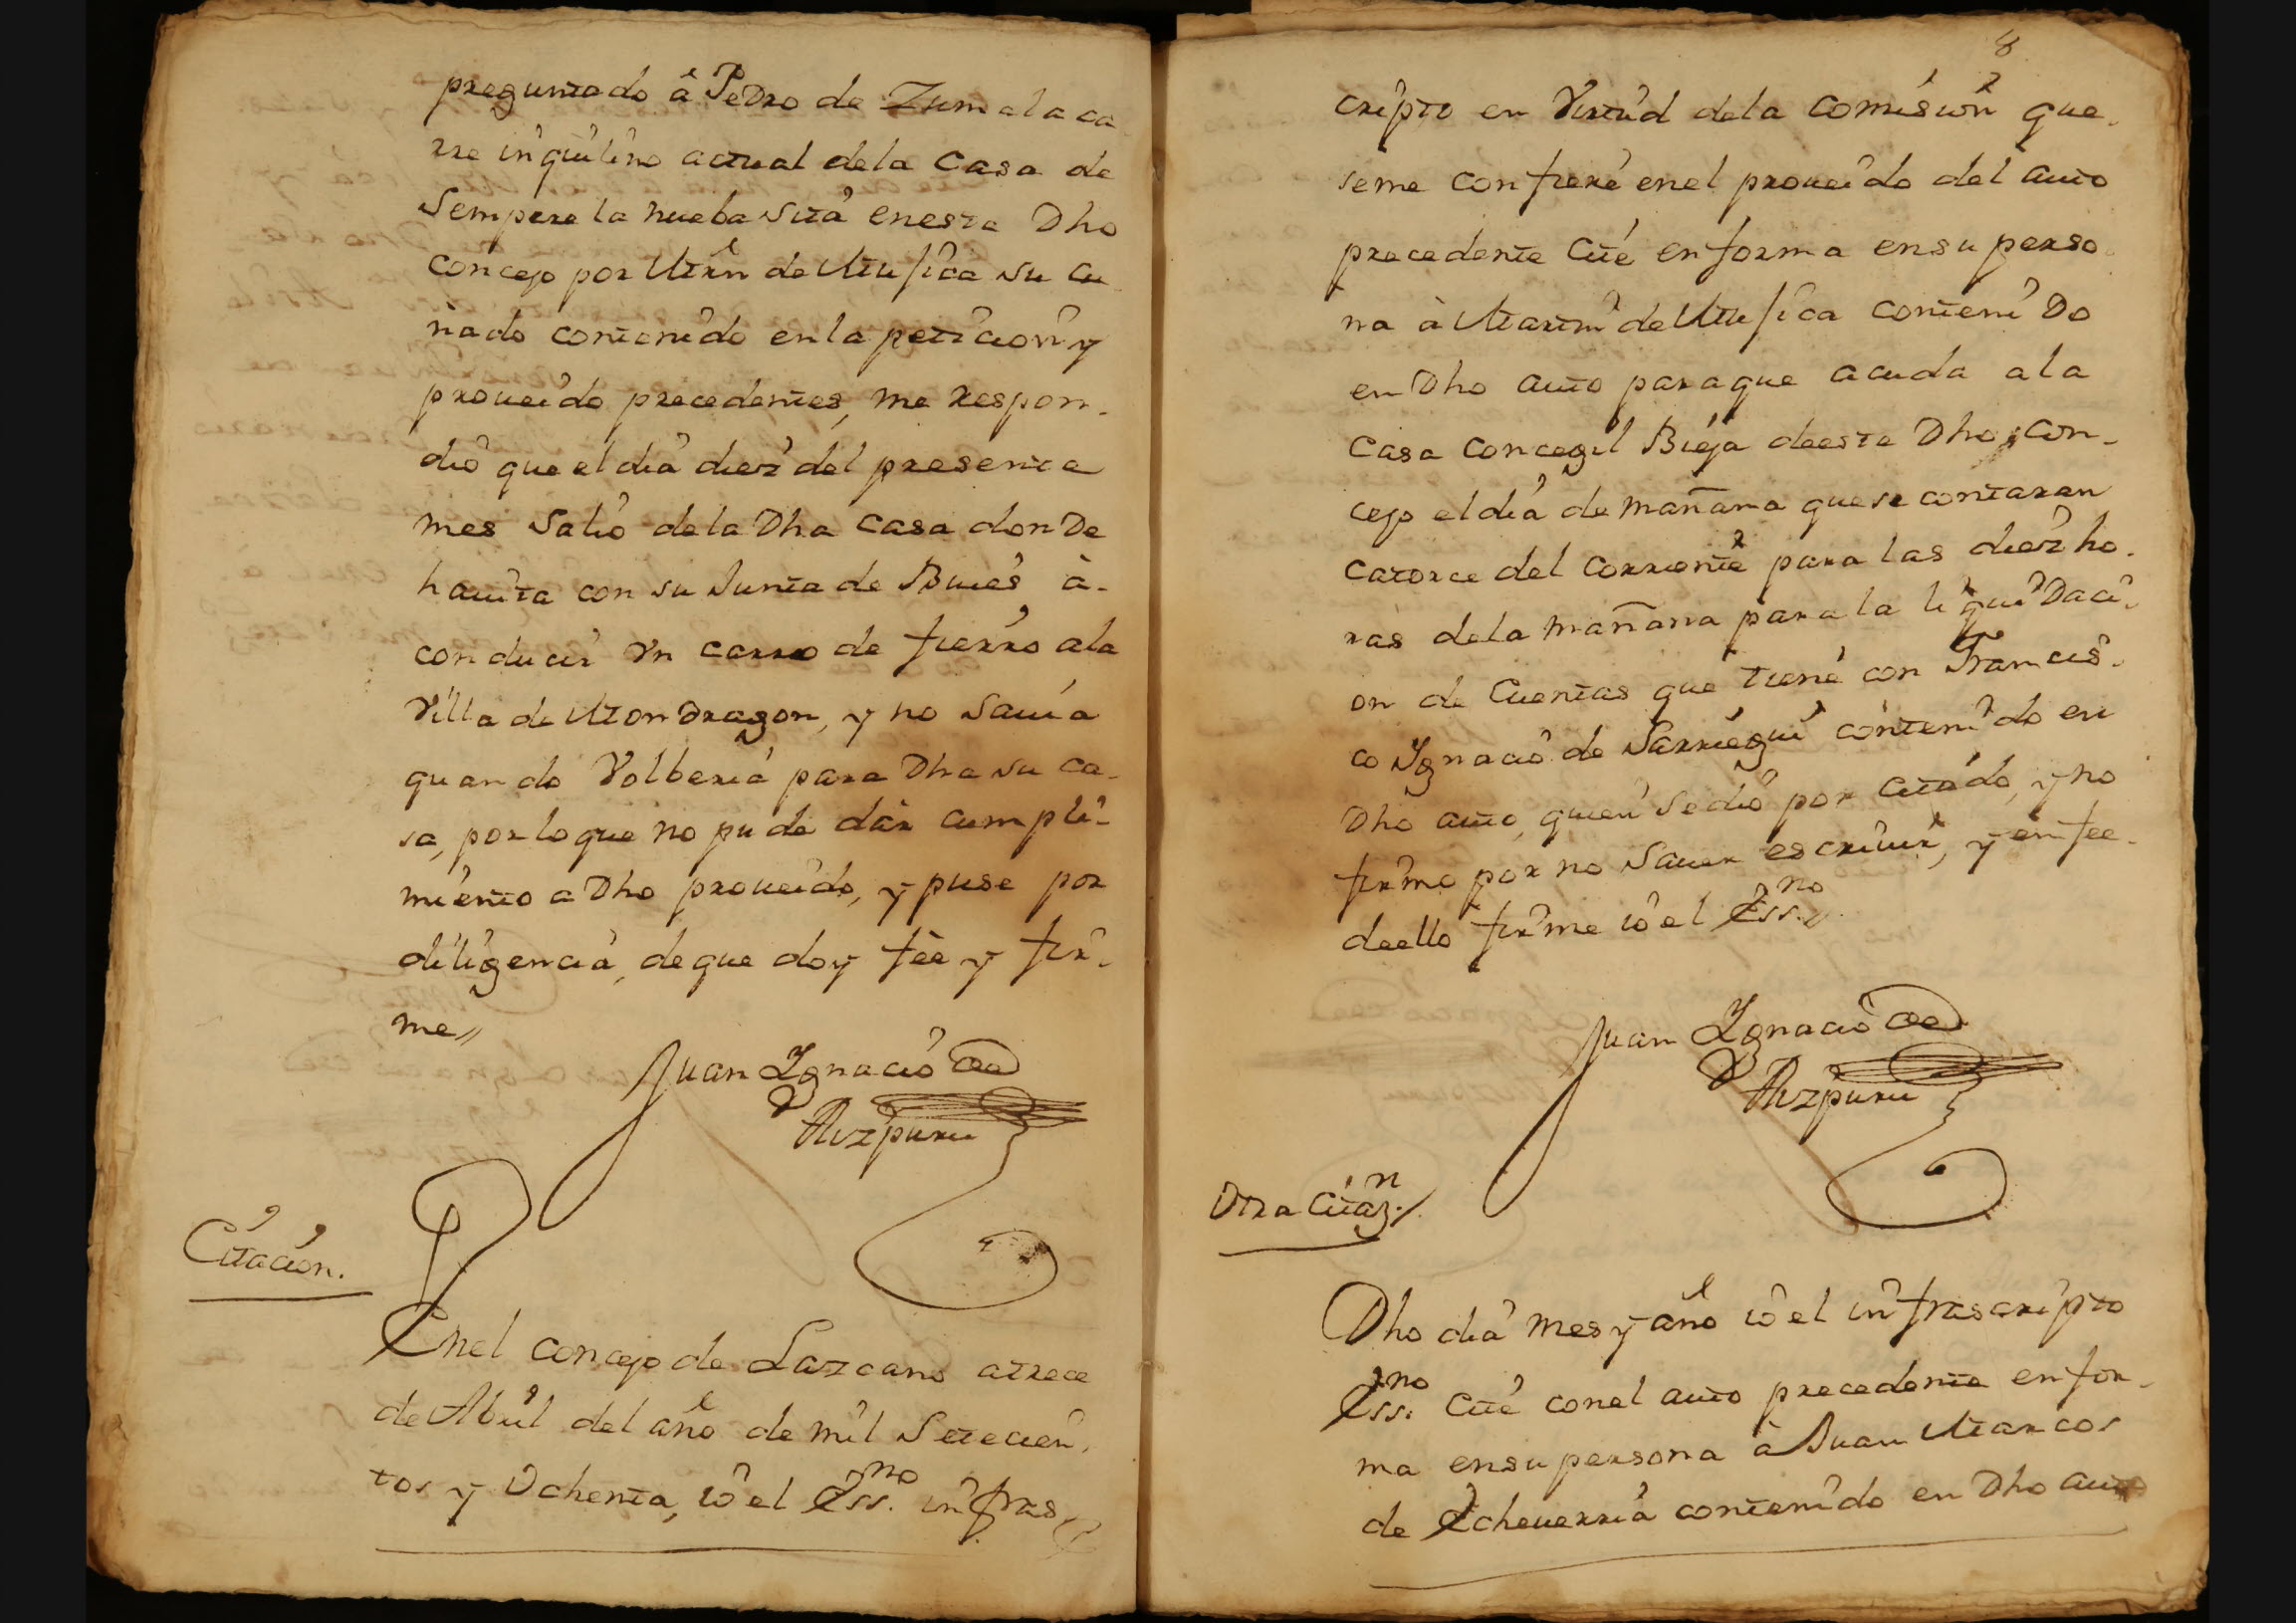 preguntado â Pedro de Zumalaca
rre inquilino actual dela Casa de
Sempere la nueba Sita enesta Dho
concejo por Mrñ de Mujica su cu
ñado contenido en la peticion y
proueido precedentes, me respon-
dió que el dia diez del presente
mes Salió dela Dha Casa donde
hauita con su Junta de Bueies à-
conducir Vn carro de fierro ala
Villa de Mondragon, y no Sauia
quando Volberia para Dha su ca-
sa, por lo que no pude dar cumpli-
miento a Dho proueido, y puse por
diligencia, de que doy fèe y fir-
me//
Juan Ygnacio de
Aizpuru
Citacion.
Enel concejo de Lazcano atrece
de Abril del año de mil Setecien-
tos y Ochenta, io el Ess.no infras
8
cripto en Virtud dela comision que
seme confiere enel proueido del auto
precedente Cité enforma ensu perso
na à Martin de Mujica contenido
en Dho auto paraque acuda ala
Casa Concegil Bieja deesta Dho con-
cejo el dia de mañana que se contaran
catorce del corriente para las diez ho-
ras dela mañana para la liquidaci-
on de Cuentas que tiene con Francis-
co Ygnacio de Sarriegui contenido en
Dho auto, quien se dió por citado, y no
firmo por no Sauer escriuir, y en fee
deello firme io el Ess.no
Juan Ygnacio de
Aizpuru
Otra Citaz.n
Dho dia mes y año io el infrascripto
Ess.no Cité conel auto precedente enfor-
ma ensu persona à Juan Marcos
de Echeuerria contenido en Dho auto